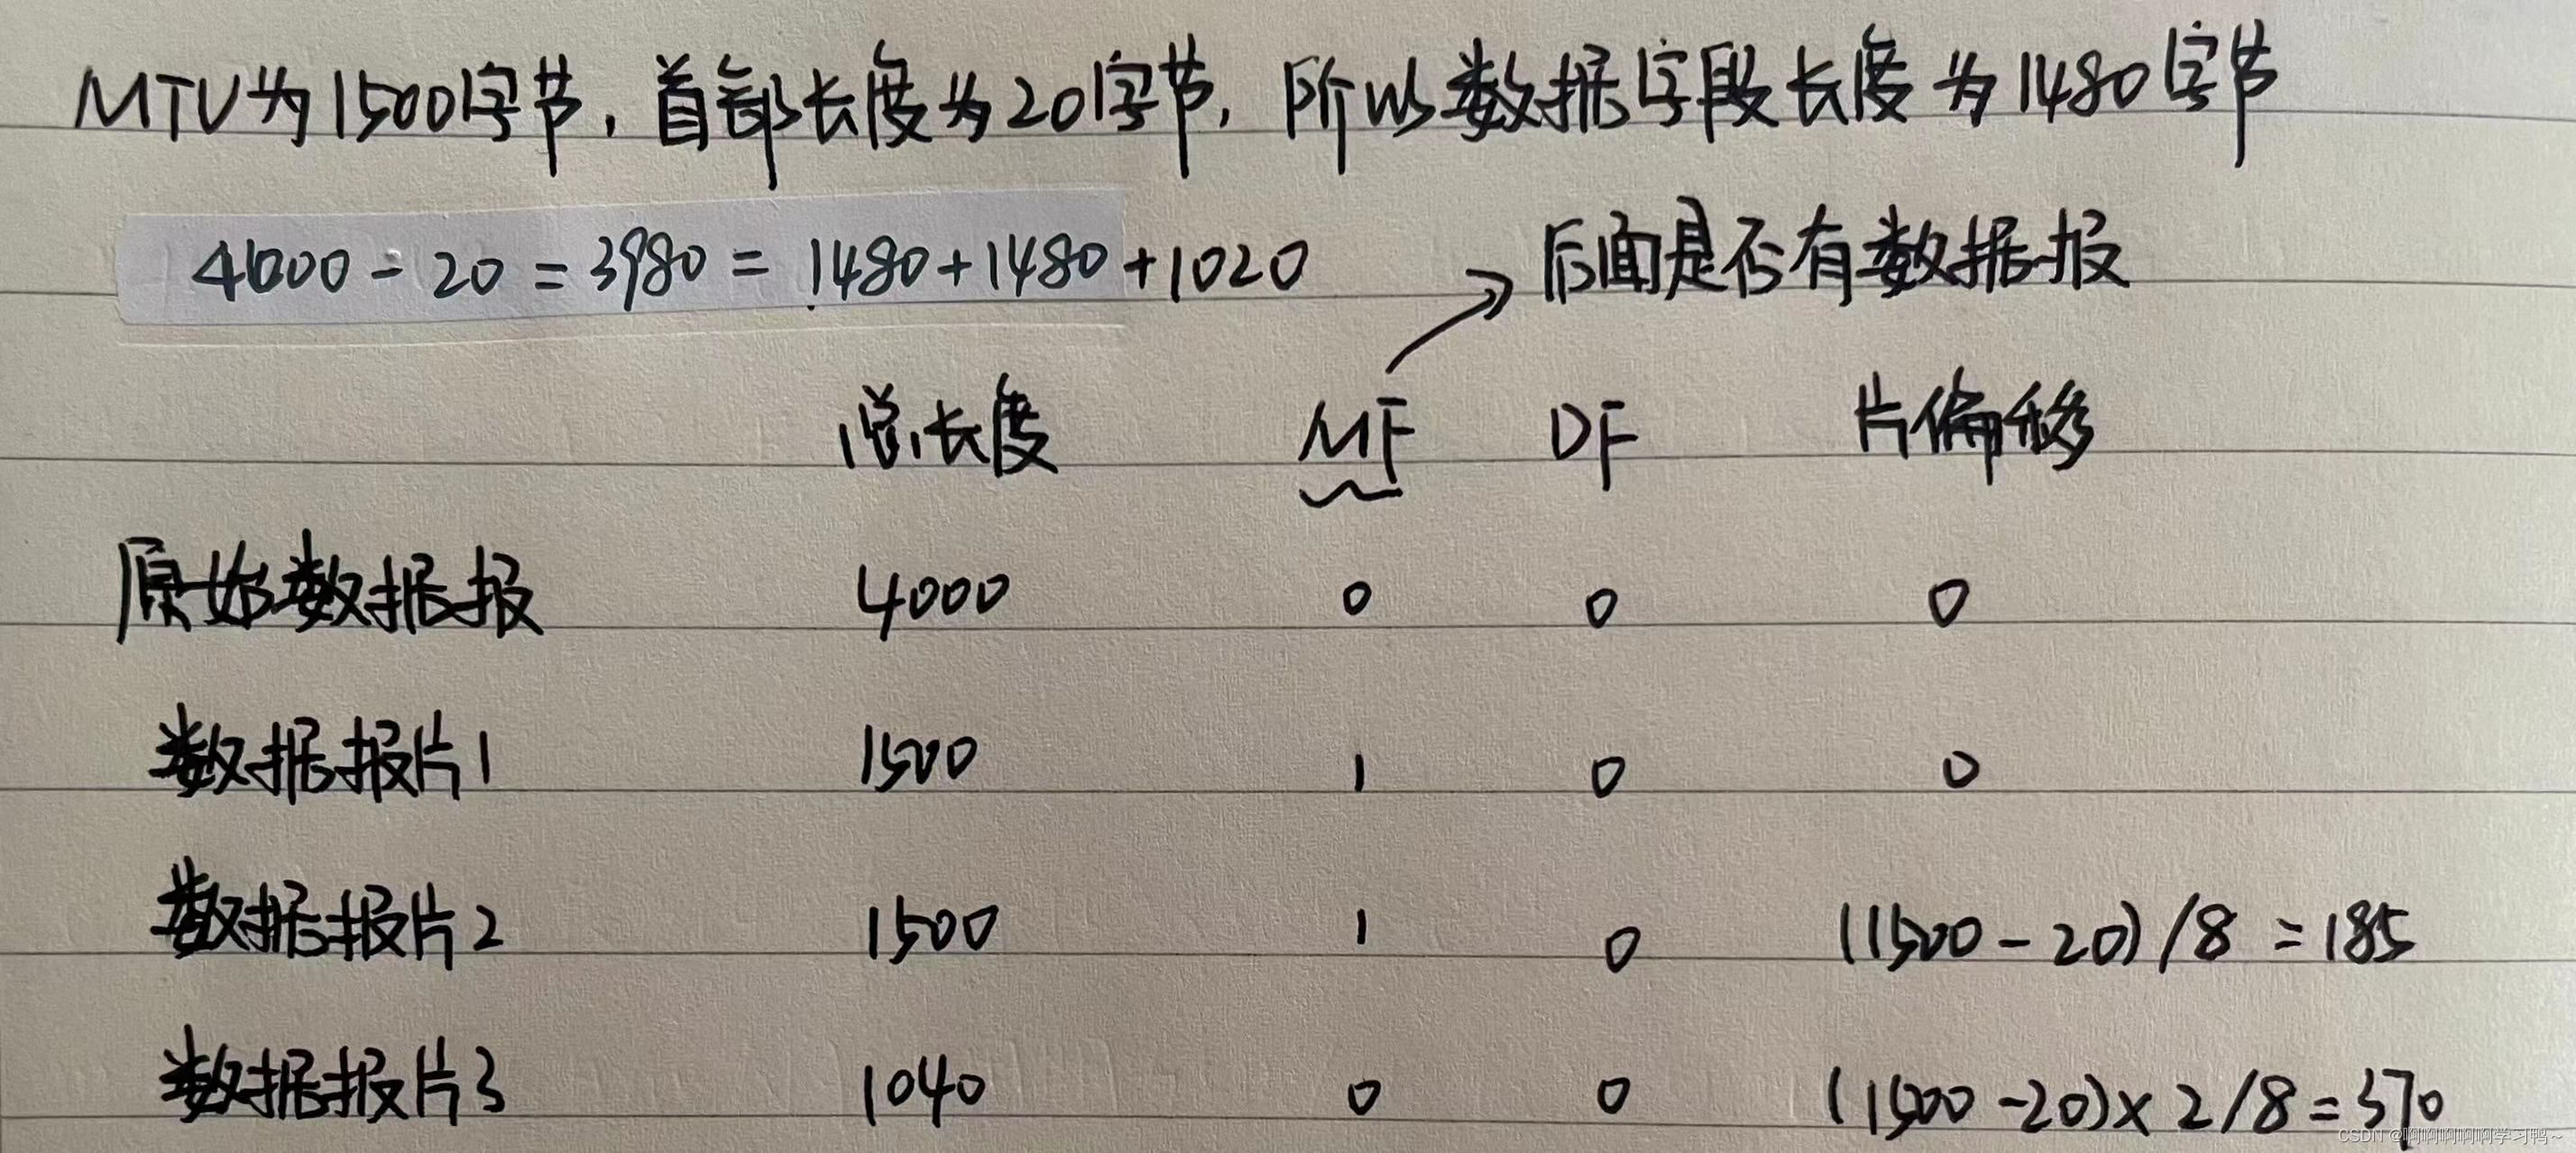 MTU为1500字节,首部长度为20字节,所以数据字段长度为1480字节
4000-20=3980=1480+1480+1020
后面是否有数据报
总长度 MF DF 片偏移
原始数据报 4000 0 0 0
数据报片1 1500 1 0 0
数据报片2 1500 1 0 (1500-20)/8=185
数据报片3 1040 0 0 (1500-20)×2/8=370
CSDN @啊啊啊啊啊学习鸭~